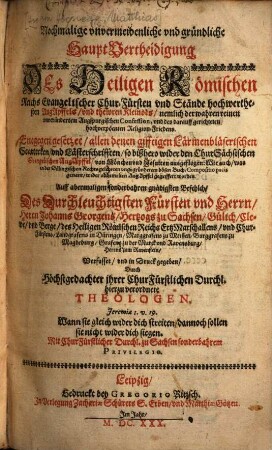 Nochmalige unvermeidenliche und gründliche
Haupt Vertheidigung
Des Heiligen Römischen
Reichs Evangelischer Chur-Fürsten und Stände hochwerthe-
sten AugApffels, und thewren Kleinods, nemlich der wahren reinen
Confession, und des darauff gerichteten
hochverpöenten Religion-Friedens.
Entgegen gesetzet / allen denen gifftigen Lärmenbläserischen
und Lästerschrifften / so bißhero wider den Chur Sächsischen
Evangelischen AugApffel / von Mönchen und Jesuiten außgeflogen: Wie auch /
Auff abermaligen sonderbahren gnädigsten Befehlch /
Des Durchleuchtigsten Fürsten und Herrn /
Herrn Johanns Georgens / Hertzogs zu Sachsen / Gülich / Cle-
ve / und Berge / des Heiligen Römischen Reichs ErtzMarschallens / und Chur-
fürsten / Landgrafens in Düringen / Marggrafens zu Meissen / Burggrafens zu
Magdeburg / Grafens zu der Marck und Ravensburg /
Herrns zum Ravenstein /
Verfasset / und in Druck gegeben /
Durch
Höchstgedachter ihrer ChurFürstlichen Durchl.
hierzu verordnete
THEOLOGEN.
Jeremiæ 1. v. 19.
Wann sie gleich wider dich streiten / dannoch sollen
sie nicht wider dich siegen.
Mit ChurFürstlicher Durchl. zu Sachsen sonderbahrem
PRIVILEGIO.
Leipzig /
Gedruckt bey GREGORIO Ritzsch.
In Verlegung Zachariæ Schürers S. Erben / und Matthiæ Götzen.
Im Jahr /
M. DC. XXX.